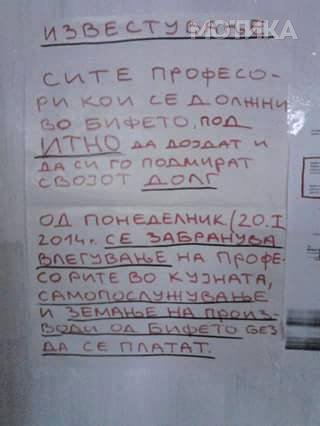 МОТИКА
ИЗВЕСТУВАЊЕ
СИТЕ ПРОФЕСО-
РИ КОИ СЕ ДОЛЖНИ
ВО БИФЕТО, ПОД
ИТНО ДА ДОЗДАТ И
ДА СИ ГО ПОДМИРАТ
СВОЈОТ ДОЛГ
ОД ПОНЕДЕЛНИК (20.I
2014г. СЕ ЗАБРАНУВА
ВЛЕГУВАЊЕ НА ПРОФЕ-
СОРИТЕ ВО КУЗНАТА,
САМОПОСЛУЖУВАЊЕ
И ЗЕМАЊЕ НА ПРОИЗ-
ВОДИ ОД БИФЕТО БЕЗ
ДА СЕ ПЛАТАТ.